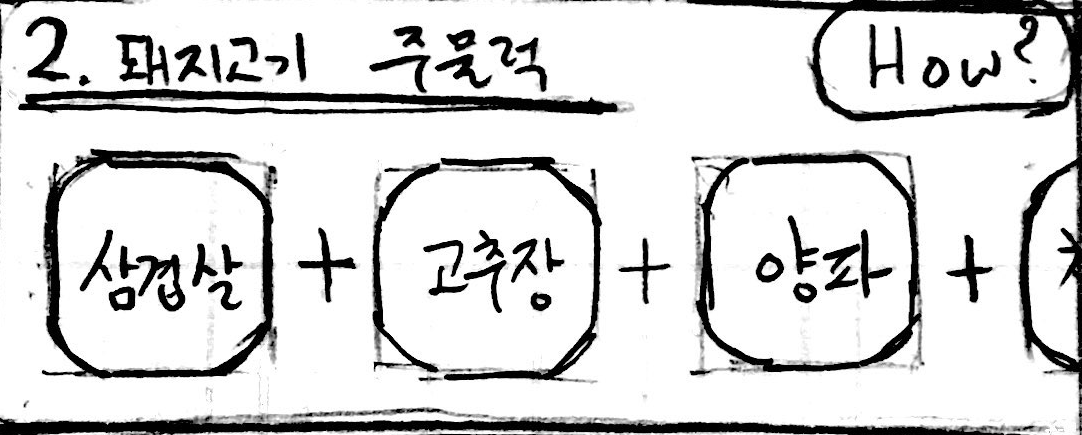 2. 돼지고기 주물럭 How?
삼겹살 + 고추장 + 양파 +